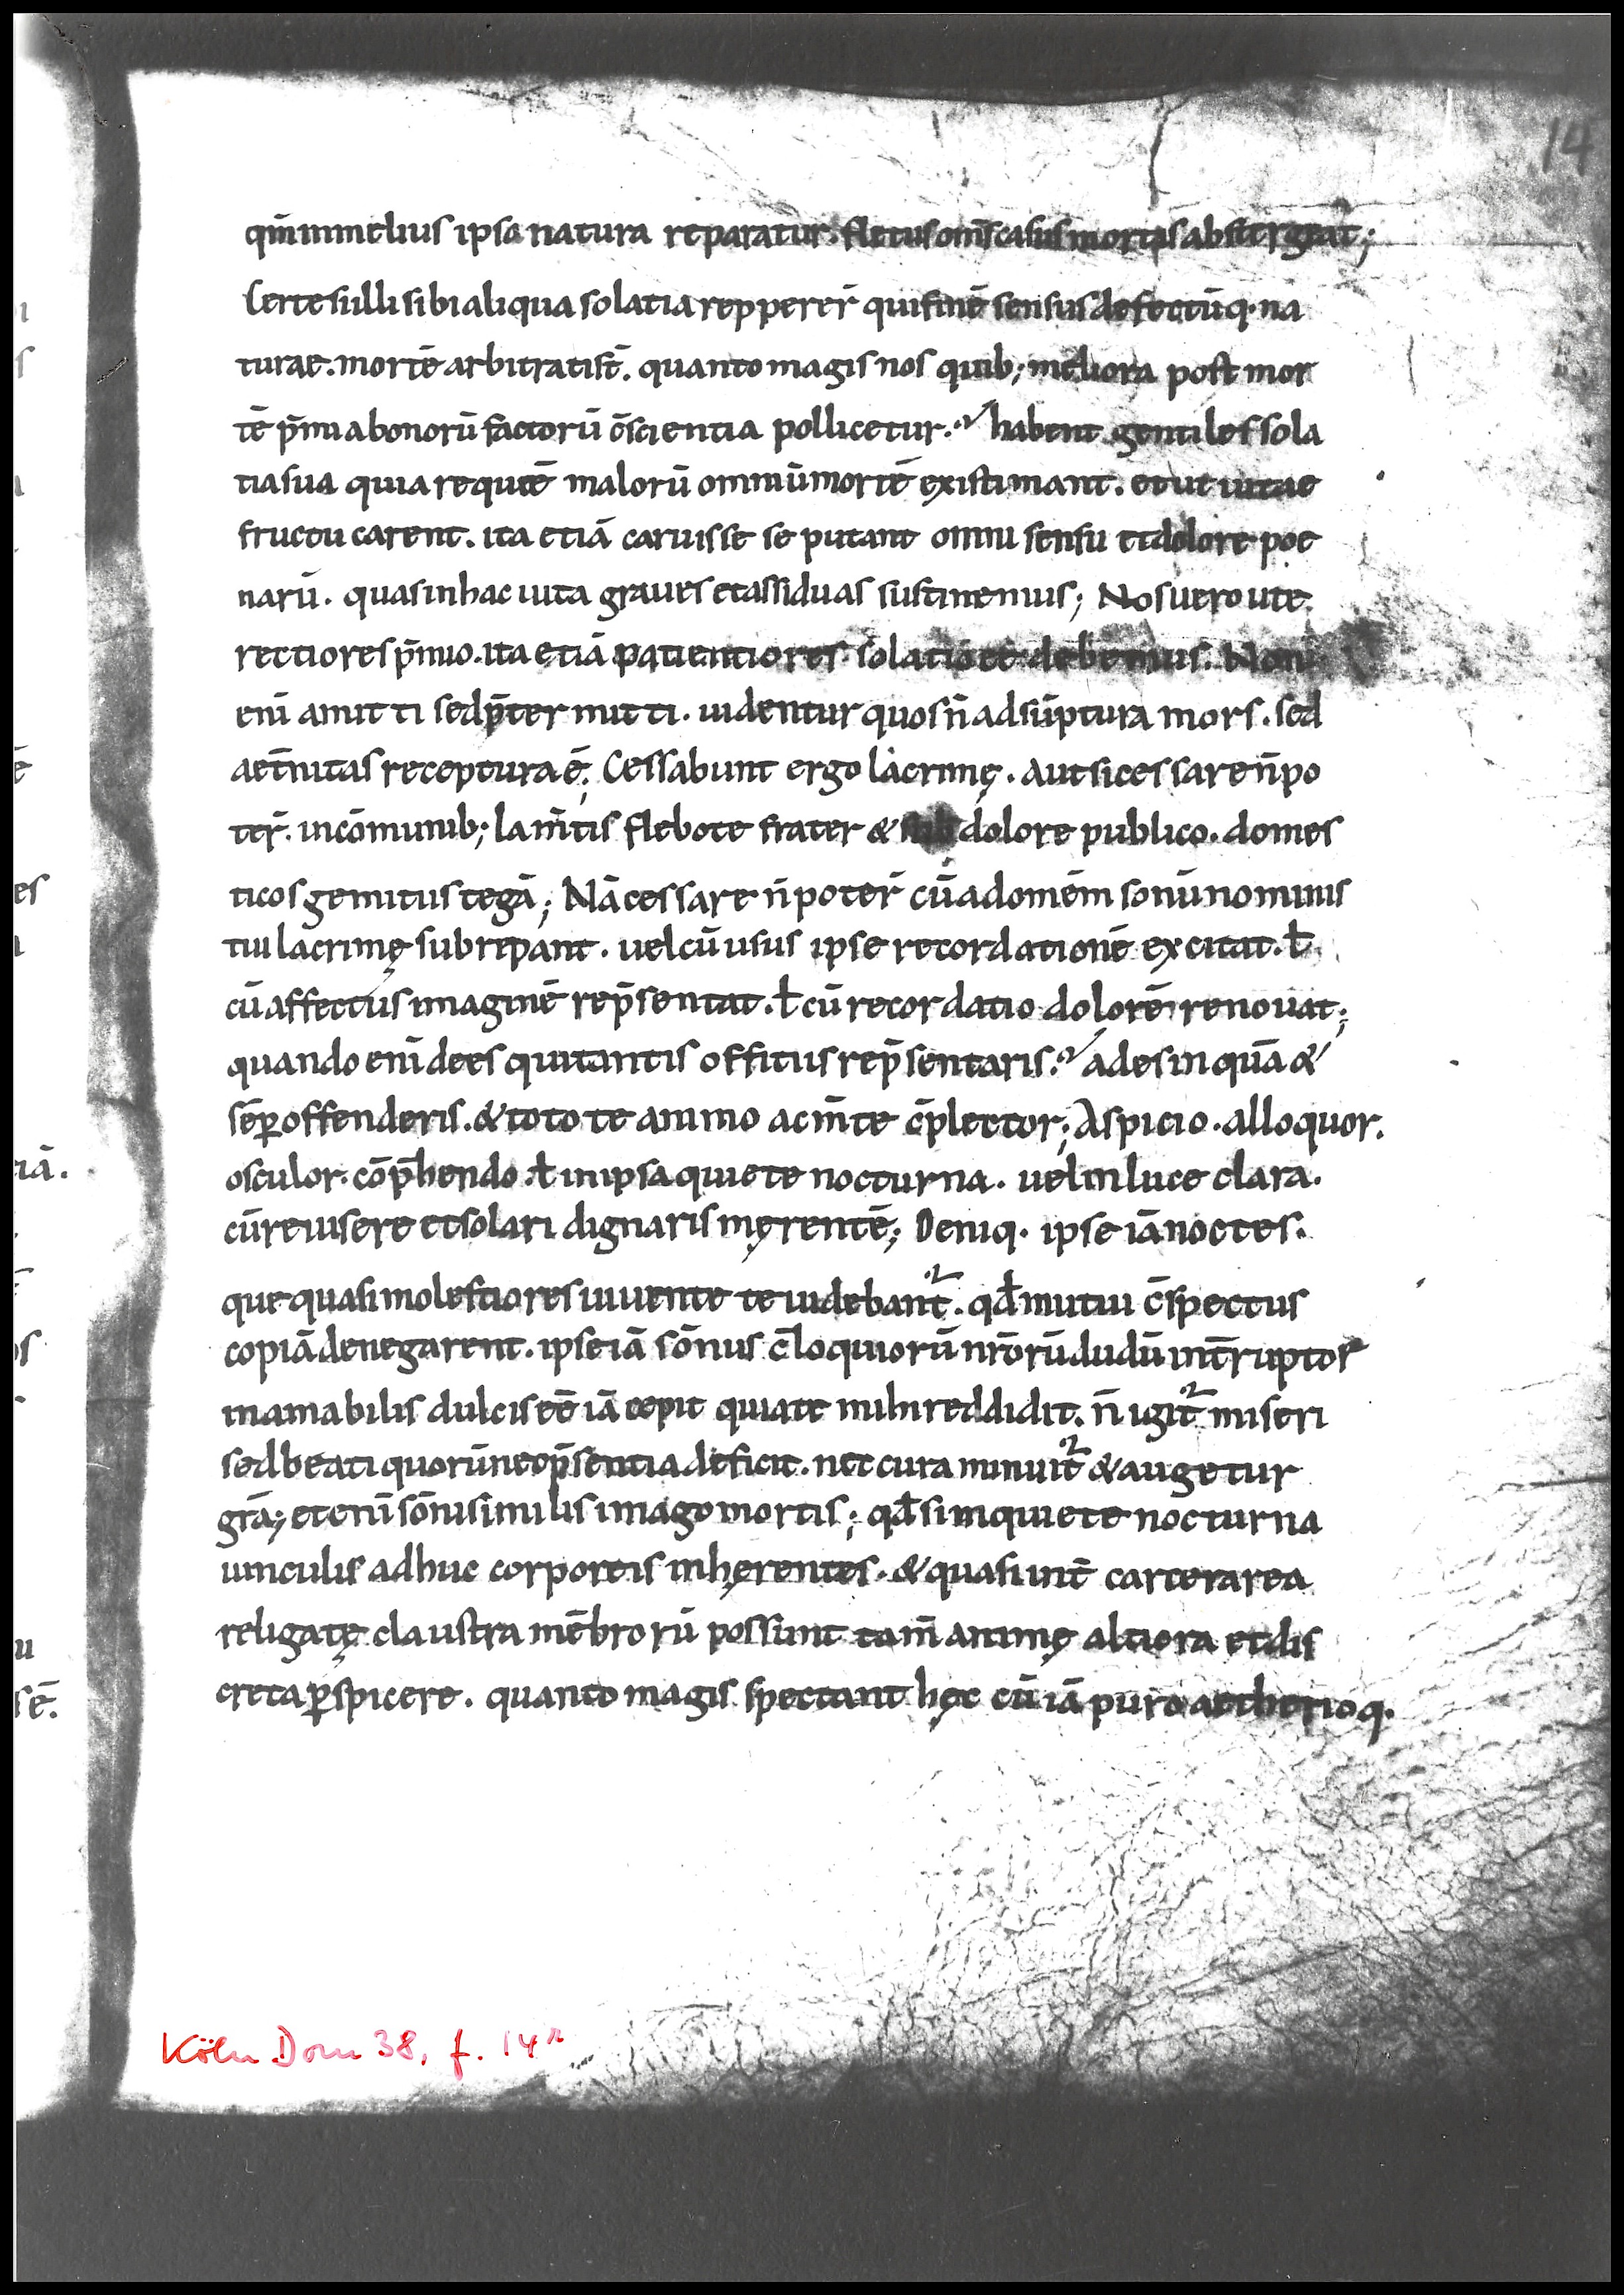 14
qm̄ inmelius ipsa natura reparatur. fletus om̄s casus mortis abstergeat;
Certe si illi sibi aliqua solatia reppererr̄ qui finē sensus defectūq. na
turae. mortē arbitrati st̄. quanto magis nos quib; meliora post mor
tē p̄mia bonorū factorū c̄scientia pollicetur. habent gentiles sola
tia sua quia requiē malorū omniū mortē existimant. et ut uitae
fructu carent. ita etiā caruisse se putant omni sensu et dolore poe
narū. quas in hac uita graues et assiduas sustinemus; Nos uero ut e
rectiores p̄mio. ita etiā patientiores solatio eē debemus. Non
enī amitti sed p̄termitti. uidentur quos n̄ adsūptura mors. sed
aet̄nitas receptura ē; Cessabunt ergo lacrimę. aut si cessare n̄ po
ter̄. in cōmunib; lam̄tis flebo te frater & sub dolore publico. domes
ticos gemitus tegā; Nā cessare n̄ poter̄ cū ad om̄em sonū nominis
tui lacrimę subrepant. uel cū usus ipse recordationē excitat. ł
cū affectus imaginē rep̄sentat. ł cū recordatio dolorē renouat;
quando enī dees qui tantis offitiis rep̄sentaris. ades inquā &
sēp offenderis. & toto te animo ac m̄te c̄plector; Aspicio. alloquor.
osculor. cōp̄hendo. ł in ipsa quiete nocturna. uel in luce clara.
cū reuisere et solari dignaris męrentē; Deniq. ipse iā noctes.
que quasi molestiores uiuente te uidebant̄. qd̄ mutui c̄spectus
copiā denegarent. ipse iā sōnus c̄loquiorū nr̄orū dudū int̄ruptor
inamabilis dulcis eē iā cepit quia te mihi reddidit. n̄ igit̄ miseri
sed beati quorū nec p̄sentia deficit. nec cura minuit̄ & augetur
gr̄a; etenī sōni similis imago mortis; qd̄ si in quiete nocturna
uinculis adhuc corporeis inhęrentes. & quasi int̄ carcerarea
religatę claustra mēbrorū possunt tam̄ animę altiora et dis
creta p̄spicere. quanto magis spectant hęc cū iā puro aetherioq.
Köln Dom 38, f. 14r